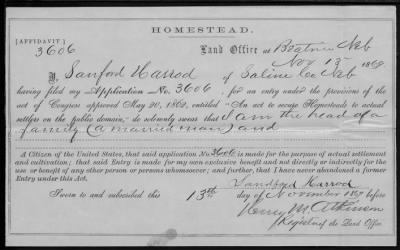 HOMESTEAD.
[AFFIDAVIT]
3606
Land Office at Beatrice Neb
Nov 13th 1869
I, Sanford Harrod of Saline Co Neb
having filed my Application No. 3606, for an entry under the provisions of the
act of Congress approved May 20, 1862, entitled "An act to secure Homesteads to actual
settlers on the public domain," do solemnly swear that I am the head of a
family (a married man) and
A Citizen of the United States, that said application No. 3606 is made for the purpose of actual settlement
and cultivation; that said Entry is made for my own exclusive benefit and not directly or indirectly for the
use or benefit of any other person or persons whomsoever; and further, that I have never abandoned a former
Entry under this Act.
Sandford Harrod
Sworn to and subscribed this 13th day of November 1869 before
Henry M. Atkinson
Register of the Land Office.